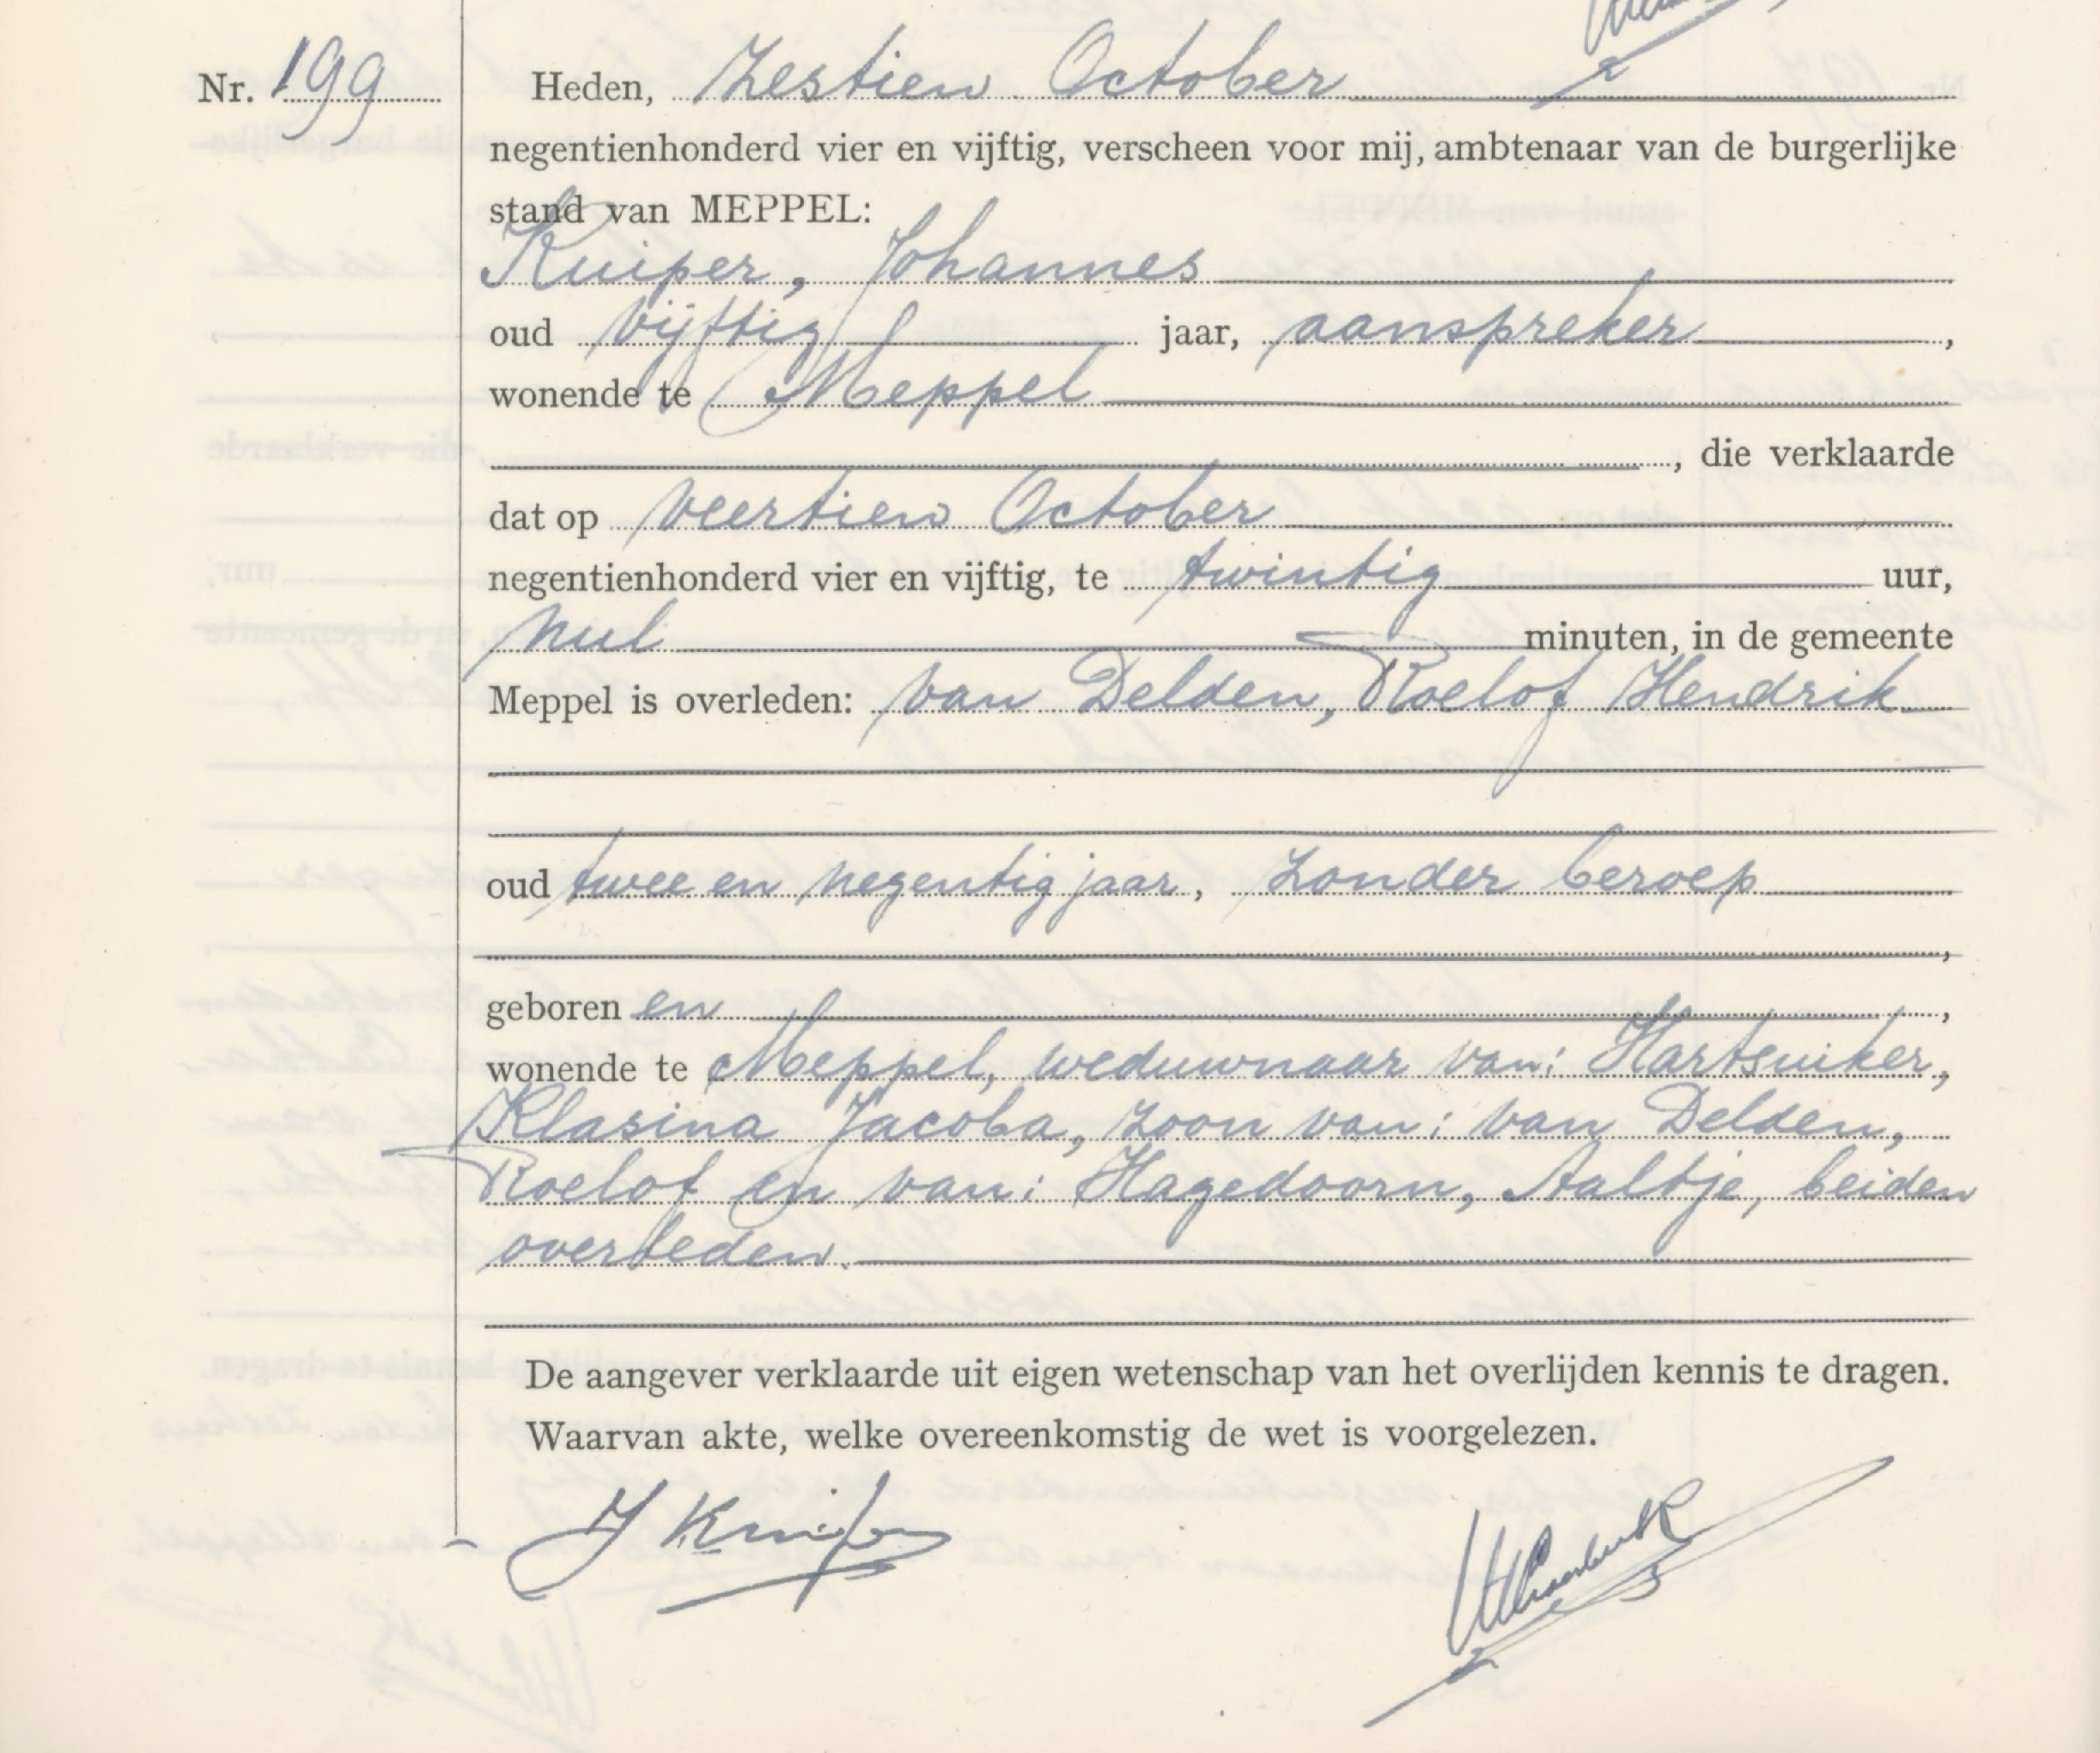 Nr. 199
Heden, Zestien October
negentienhonderd vier en vijftig, verscheen voor mij, ambtenaar van de burgerlijke
stand van MEPPEL:
Kuiper, Johannes
oud vijftig jaar, aanspreker,
wonende te Meppel
, die verklaarde
dat op veertien October
negentienhonderd vier en vijftig, te twintig uur,
nul minuten, in de gemeente
Meppel is overleden: van Delden, Roelof Hendrik
oud twee en negentig jaar, zonder beroep
,
geboren en ,
wonende te Meppel, weduwnaar van: Hartsuiker,
Klasina Jacoba, zoon van: van Delden,
Roelof en van: Hagedoorn, Aaltje, beiden
overleden.
De aangever verklaarde uit eigen wetenschap van het overlijden kennis te dragen.
Waarvan akte, welke overeenkomstig de wet is voorgelezen.
J Kuiper